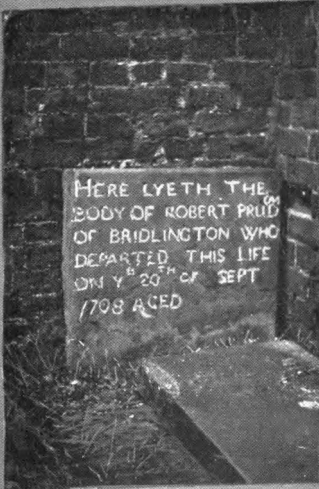 HERE LYETH THE
BODY OF ROBERT PRUDOM
OF BRIDLINGTON WHO
DEPARTED THIS LIFE
ON YE 20TH OF SEPT
1708 AGED